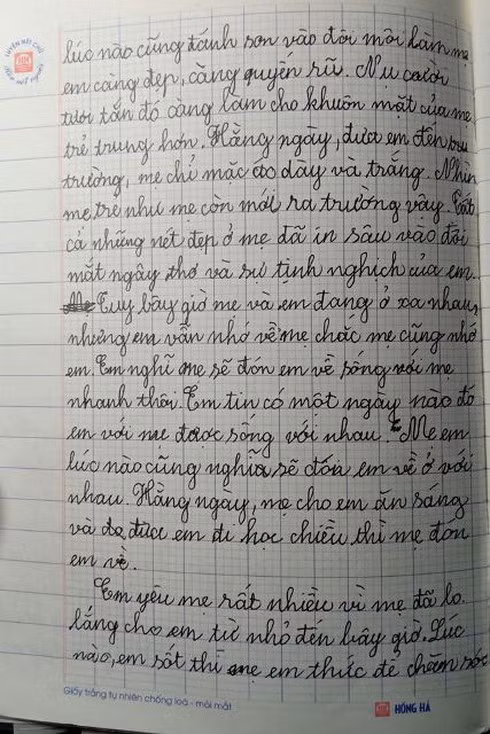 LUYỆN NÉT CHỮ
lúc nào cũng đánh son vào đôi môi làm mẹ
em càng đẹp, càng quyến rũ. Nụ cười
tươi tắn đó càng làm cho khuôn mặt của mẹ
trẻ trung hơn. Hằng ngày, đưa em đến
trường, mẹ chỉ mặc áo dày và trắng. Nhìn
mẹ, trẻ như mẹ còn mới ra trường vậy. Tất
cả những nét đẹp ở mẹ đã in sâu vào đôi
mắt ngây thơ và sự tịnh nghịch của em.
Tuy bây giờ mẹ và em đang ở xa nhau,
nhưng em vẫn nhớ về mẹ chắc mẹ cũng nhớ
em. Em nghĩ mẹ sẽ đón em về sống với mẹ
nhanh thôi. Em tin có một ngày nào đó
em với mẹ được sống với nhau. Mẹ em
lúc nào cũng nghĩ sẽ đón em về ở với
nhau. Hằng ngày, mẹ cho em ăn sáng
và đưa em đi học chiều thì mẹ đón
em về.
Em yêu mẹ rất nhiều vì mẹ đã lo
lắng cho em từ nhỏ đến bây giờ. Lúc
nào, em sốt thì mẹ em thức để chăm sóc
Giấy trắng tự nhiên chống loá - mỏi mắt
HỒNG HÀ